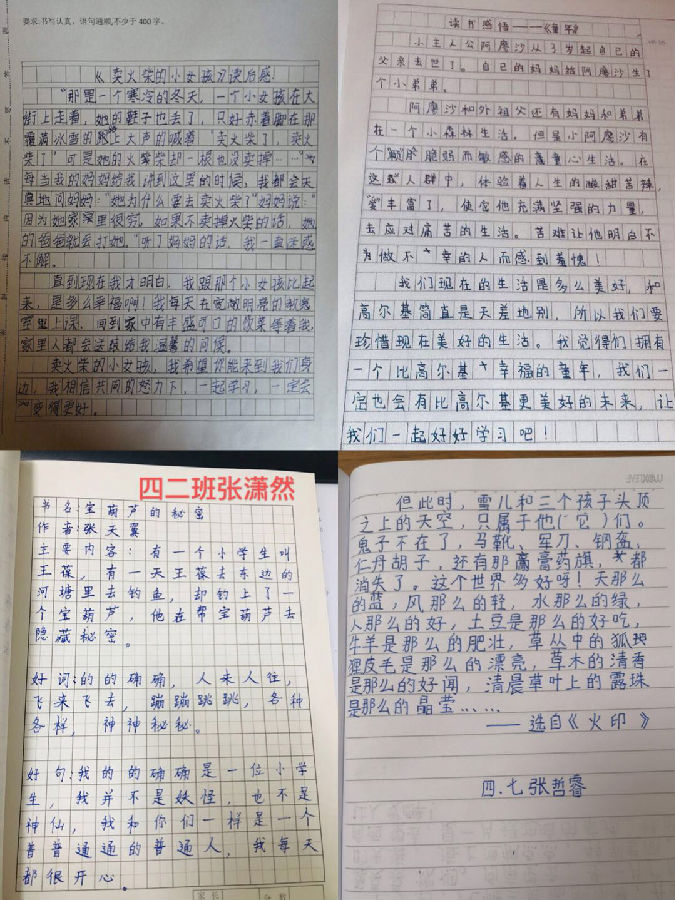 要求:书写认真，语句通顺,不少于 400 字。
《卖火柴的小女孩》读后感
"那是一个寒冷的冬天，一个小女孩在大
街上走着，她的鞋子也丢了，只好赤着脚在那
霜满冰雪的路上大声的喊着"卖火柴了，卖火
柴了"可是她的火柴却一根也没卖掉……"
每当我的妈妈给我讲到这里的时候，我都会天
真地问妈妈："她为什么要去卖火柴了"妈妈说："
因为她家里很穷，如果不卖掉火柴的话，她
的爸爸就会打她。"听了妈妈的话，我一直迷惑
不解。
直到现在我才明白，我跟那个小女孩比起
来，是多么幸福啊！我每天在宽敞明亮的教
室里上课，回到家中有丰盛可口的饭菜等着我，
家里人都会送给我温馨的问候。
卖火柴的小女孩，我希望你能来到我们身
边，我相信共同的努力下，一起学习，一定会
变得更好。
读书感悟——《童年》
小主人公阿廖沙从3岁起自己的
父亲去世了。自己的妈妈给阿廖沙生了
个小弟弟。
阿廖沙和外祖父还有妈妈和弟弟
在一个小森林生活。但是小阿廖沙有
个脆而敏感的童心生活。在
这人群中，体验着人生的酸甜苦辣，
丰富了，使它他充满坚强的力量，
去应对痛苦的生活。苦难让他明白不
做不幸的人而感到羞愧！
我们现在的生活是多么美好，和
高尔基简直是天差地别，所以我们要
珍惜现在美好的生活。我觉得们拥有
一个比高尔基幸福的童年，我们一
定也会有比高尔基更美好的未来，让
我们一起好好学习吧！
四二班张潇然
书名:宝葫芦的秘密
作者:张天翼
主要内容：有一个小学生叫
王葆，有一天王葆去东边的
河塘里去钓鱼，却钓上了一
个宝葫芦，他在帮宝葫芦去
隐藏秘密。
好词:的的确确，人来人往，
飞来飞去，蹦蹦跳跳，各种
各样，神神秘秘。
好句:我的的确确是一位小学
生，我并不是妖怪，也不是
神仙，我和你们一样是一个
普普通通的普通人，我每天
都很开心。
家长
但此时，雪儿和三个孩子头顶
之上的天空，只属于他(它)们。
鬼子不在了，马靴、军刀、钢盔、
仁丹胡子，还有那膏膏药旗，都
消失了。这个世界多好呀！天那么
的蓝，风那么的轻，水那么的绿，
人那么的好，土豆是那么的好吃，
牛羊是那么的肥壮，草丛中的狐狸
狸皮毛是那么的漂亮，草木的清香
是那么的好闻，清晨草叶上的露珠
是那么的晶莹……
——选自《火印》
四.七张哲睿